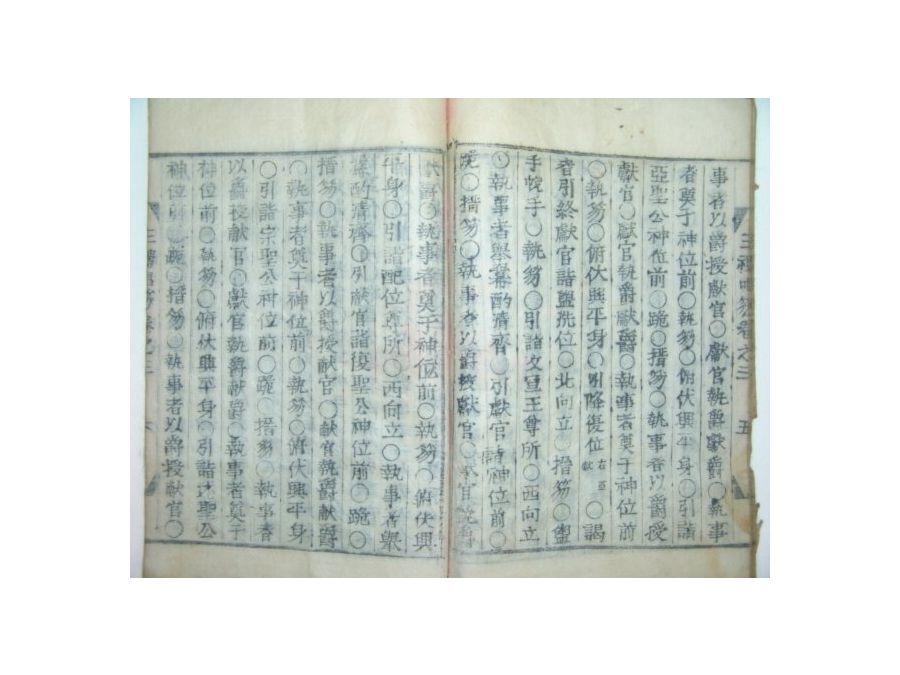 三禮唱笏卷之二
五
事者以爵授獻官〇獻官執爵獻爵〇執事
者奠于神位前〇執笏〇俯伏興平身〇引詣
亞聖公神位前〇跪〇搢笏〇執事者以爵授
獻官〇獻官執爵獻爵〇執事者奠于神位前
〇執笏〇俯伏興平身〇引降復位〇謁
者引終獻官詣盥洗位〇北向立〇搢笏〇盥
手帨手〇執笏〇引詣文宣王尊所〇西向立
〇執事者舉冪酌淸齊〇引獻官詣神位前〇
跪〇搢笏〇執事者以爵授獻官〇獻官執爵
獻爵〇執事者奠于神位前〇執笏〇俯伏興
平身〇引詣配位尊所〇西向立〇執事者舉
冪酌淸齊〇引獻官詣復聖公神位前〇跪〇
搢笏〇執事者以爵授獻官〇獻官執爵獻爵
〇執事者奠于神位前〇執笏〇俯伏興平身
〇引詣宗聖公神位前〇跪〇搢笏〇執事者
以爵授獻官〇獻官執爵獻爵〇執事者奠于
神位前〇執笏〇俯伏興平身〇引詣述聖公
神位前〇跪〇搢笏〇執事者以爵授獻官〇